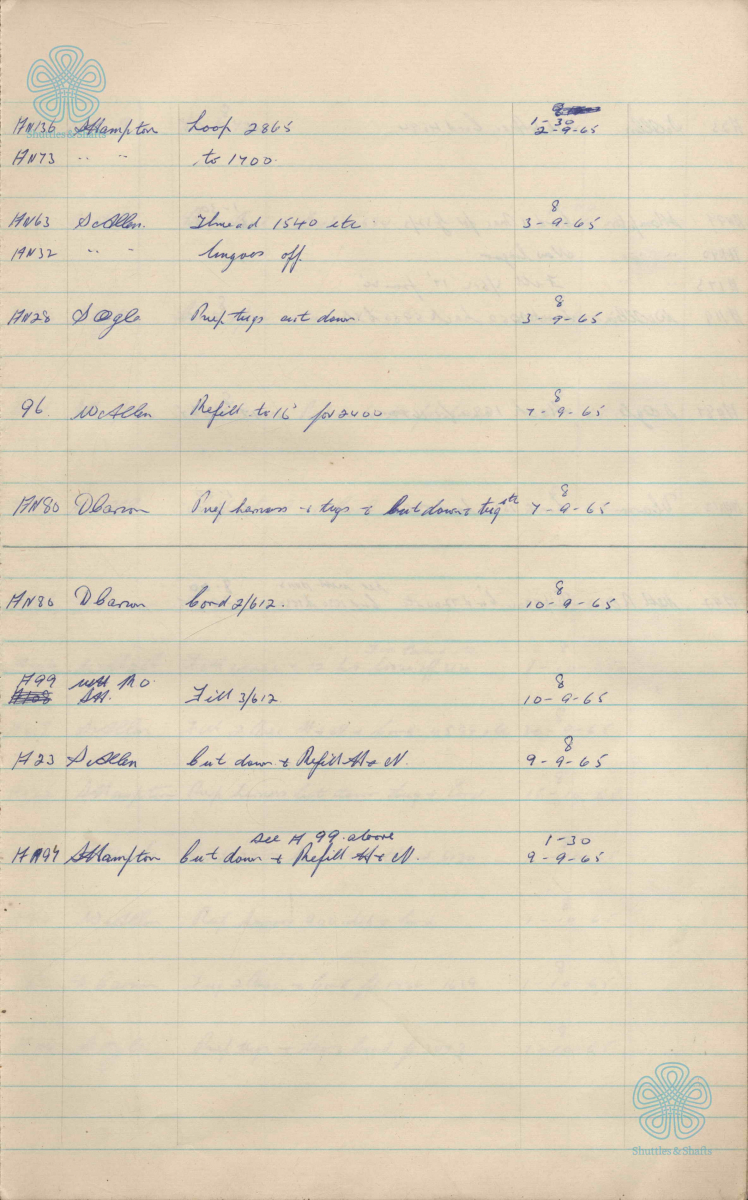 8
1-30
AN136 SHampton Loop 2865 2-9-65
Shuttles & Shafts
AN73 " " to 1700.
8
AN63 ScAllen. Thread 1540 etc 3-9-65
AN32 " " lingoes off.
8
AN28 S Ogle Prep tugs cut down 3-9-65
8
96. WcAllen Refill to 16" for 2400 7-9-65
8
AN80 DCarson Prep harness + tugs + cut down + tug etc 7-9-65
8
AN80 DCarson Cord 2/612. 10-9-65
A99 with R O. 8
SH. Fill 3/612 10-9-65
8
A23 ScAllen Cut down + Refill H + N. 9-9-65
see A 99. above 1-30
AN94 SHampton Cut down + Refill H + N. 9-9-65
Shuttles & Shafts